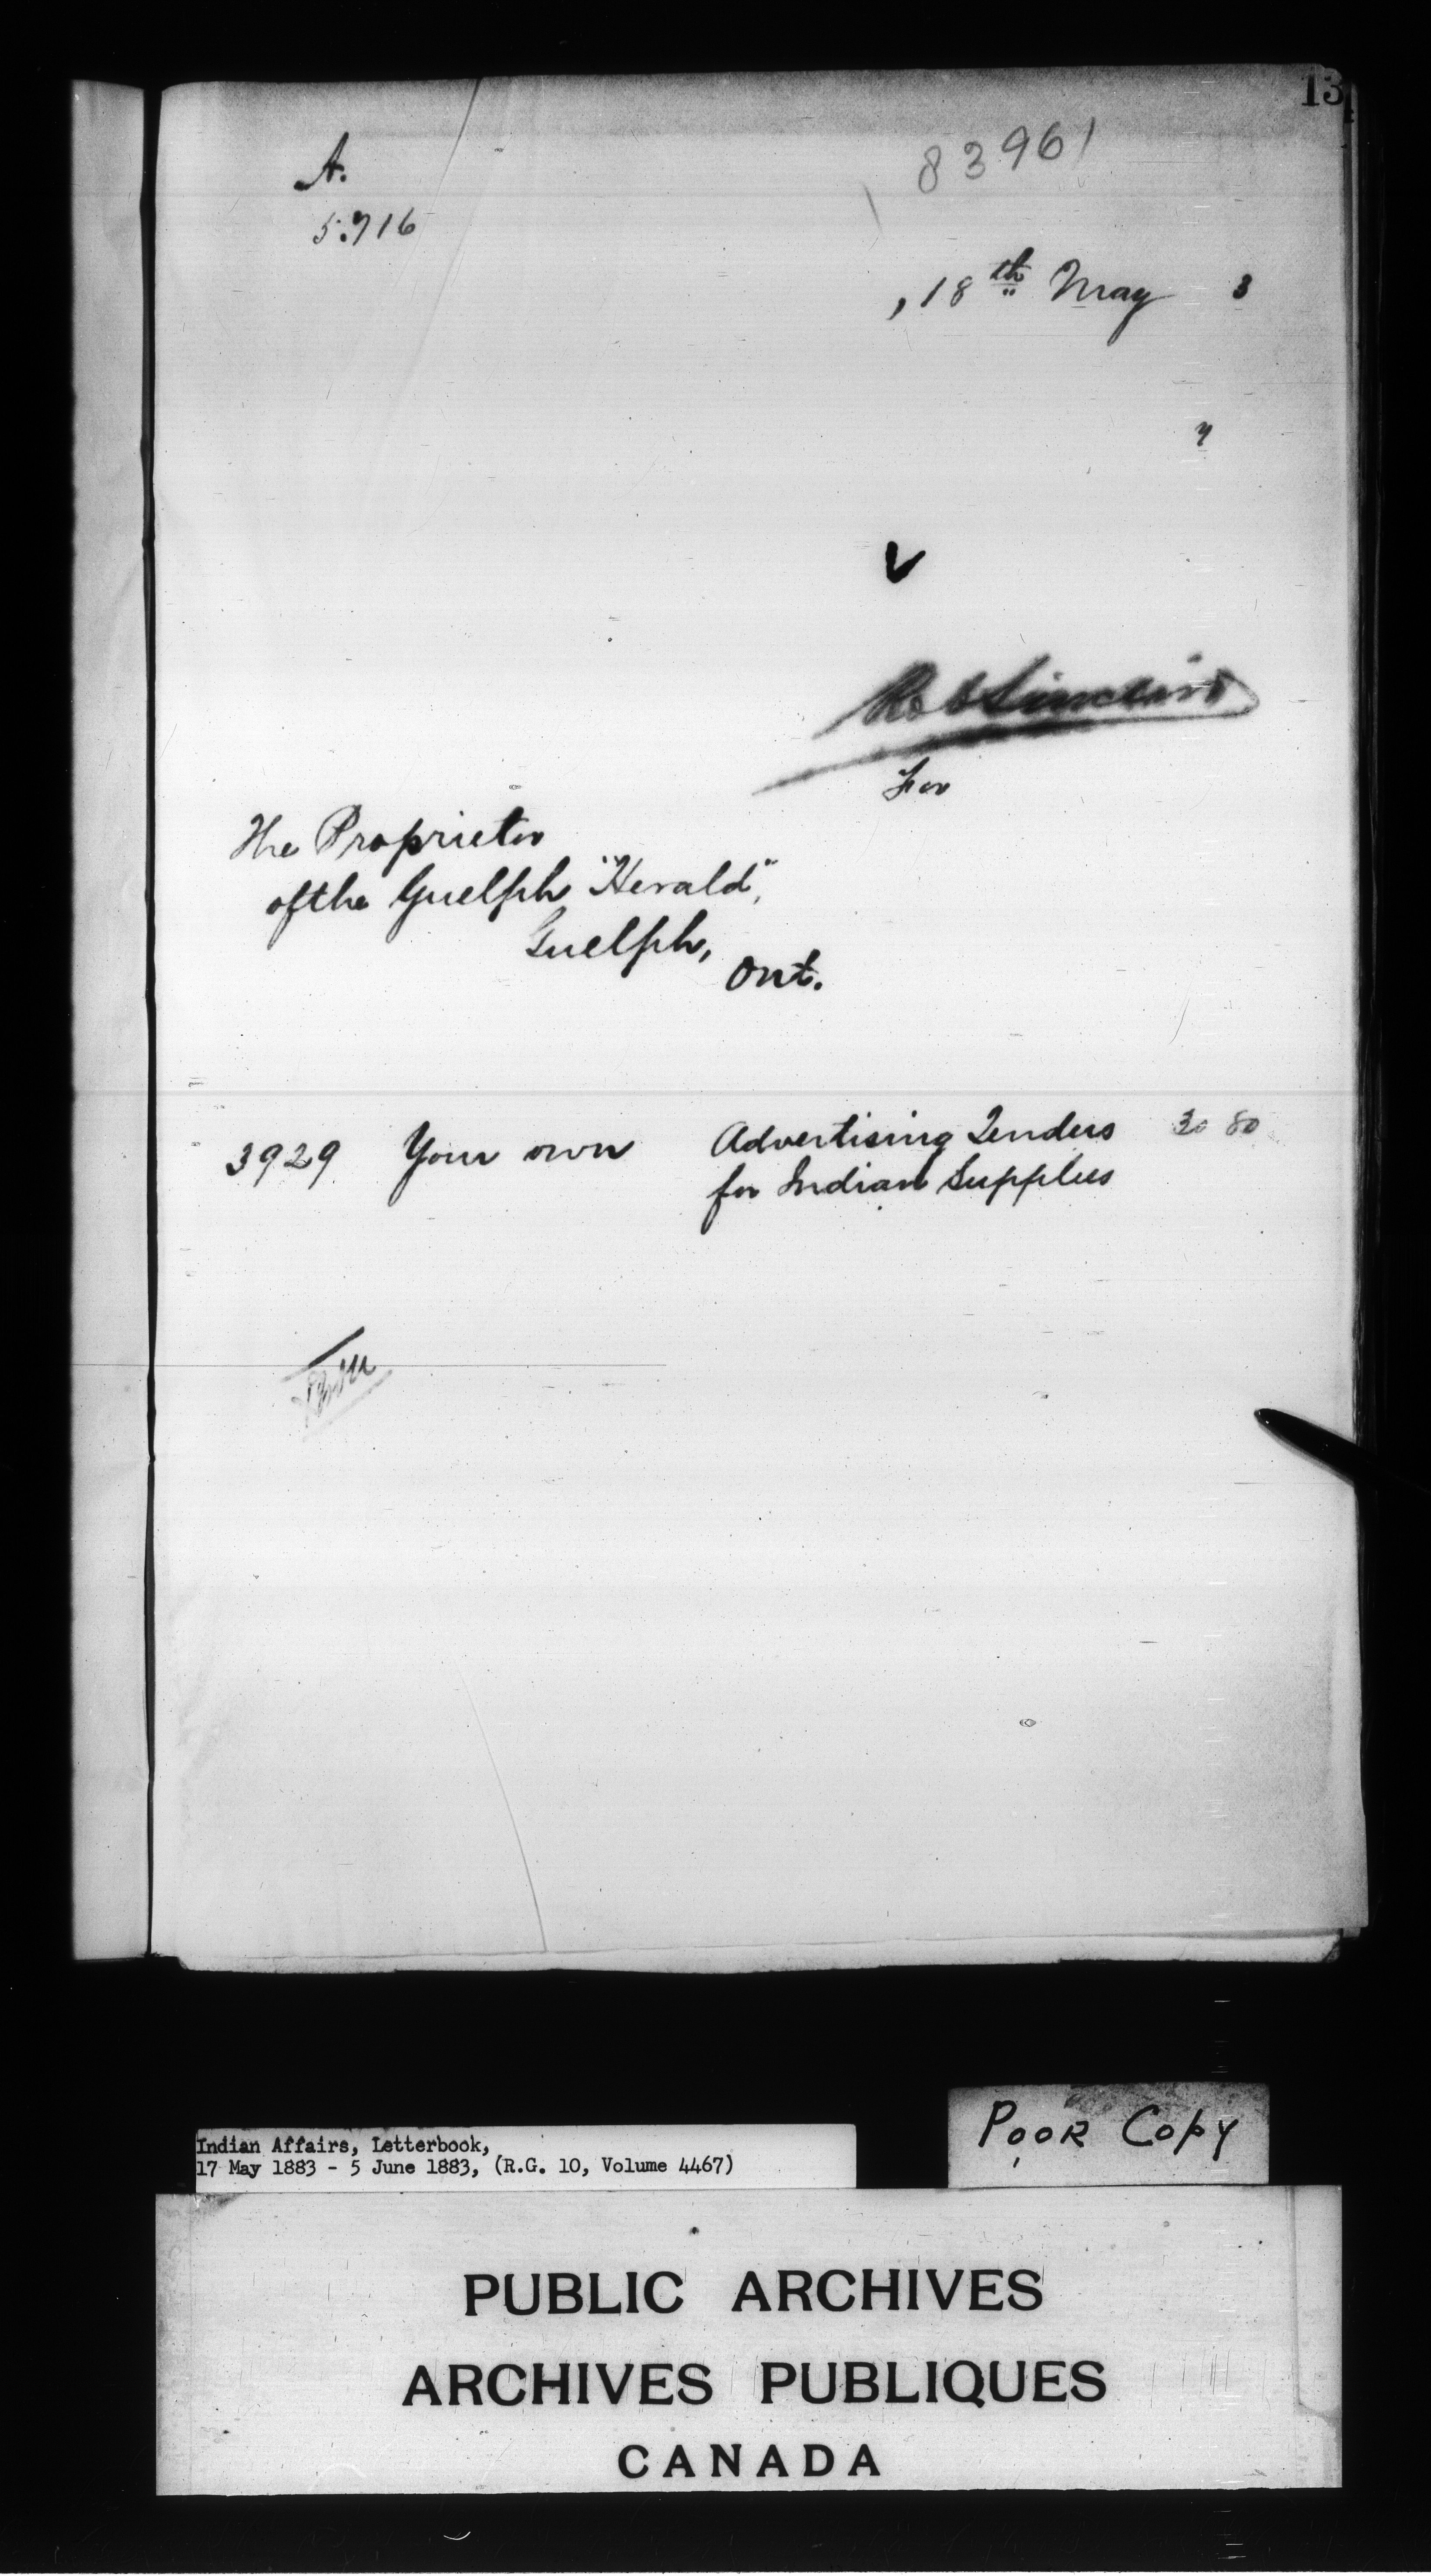 13
A.
83961
5.716
, 18th May 3
y
Rob Sinclair
For
The Proprietor
of the Guelph "Herald",
Guelph,
Ont.
3929 Your own Advertising Tenders 30 80
for Indian Supplies
Indian Affairs, Letterbook,
17 May 1883 - 5 June 1883, (R.G. 10, Volume 4467)
POOR COPY
PUBLIC ARCHIVES
ARCHIVES PUBLIQUES
CANADA